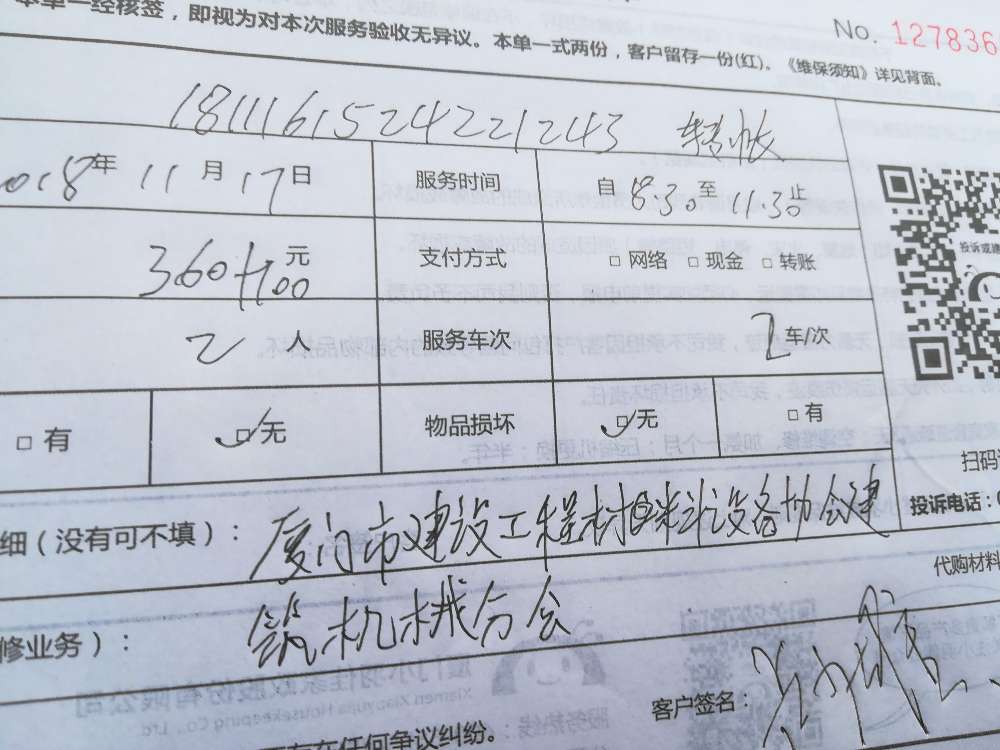 本单一经核签，即视为对本次服务验收无异议。本单一式两份，客户留存一份(红)。《维保须知》详见背面。
No. 127836
1811161524221243 转账
2018年 11月 17日 服务时间 自 8:30 至 11:30 止
360+100元 支付方式 □ 网络 □ 现金 □ 转账
2 人 服务车次 2 车/次
□ 有 □ 无 物品损坏 □ 无 □ 有
投诉或建
扫码
细（没有可不填）： 厦门市建设工程材料设备协会建
投诉电话：
代购材料
修业务）： 筑机械分会
客户签名：
存在任何争议纠纷。